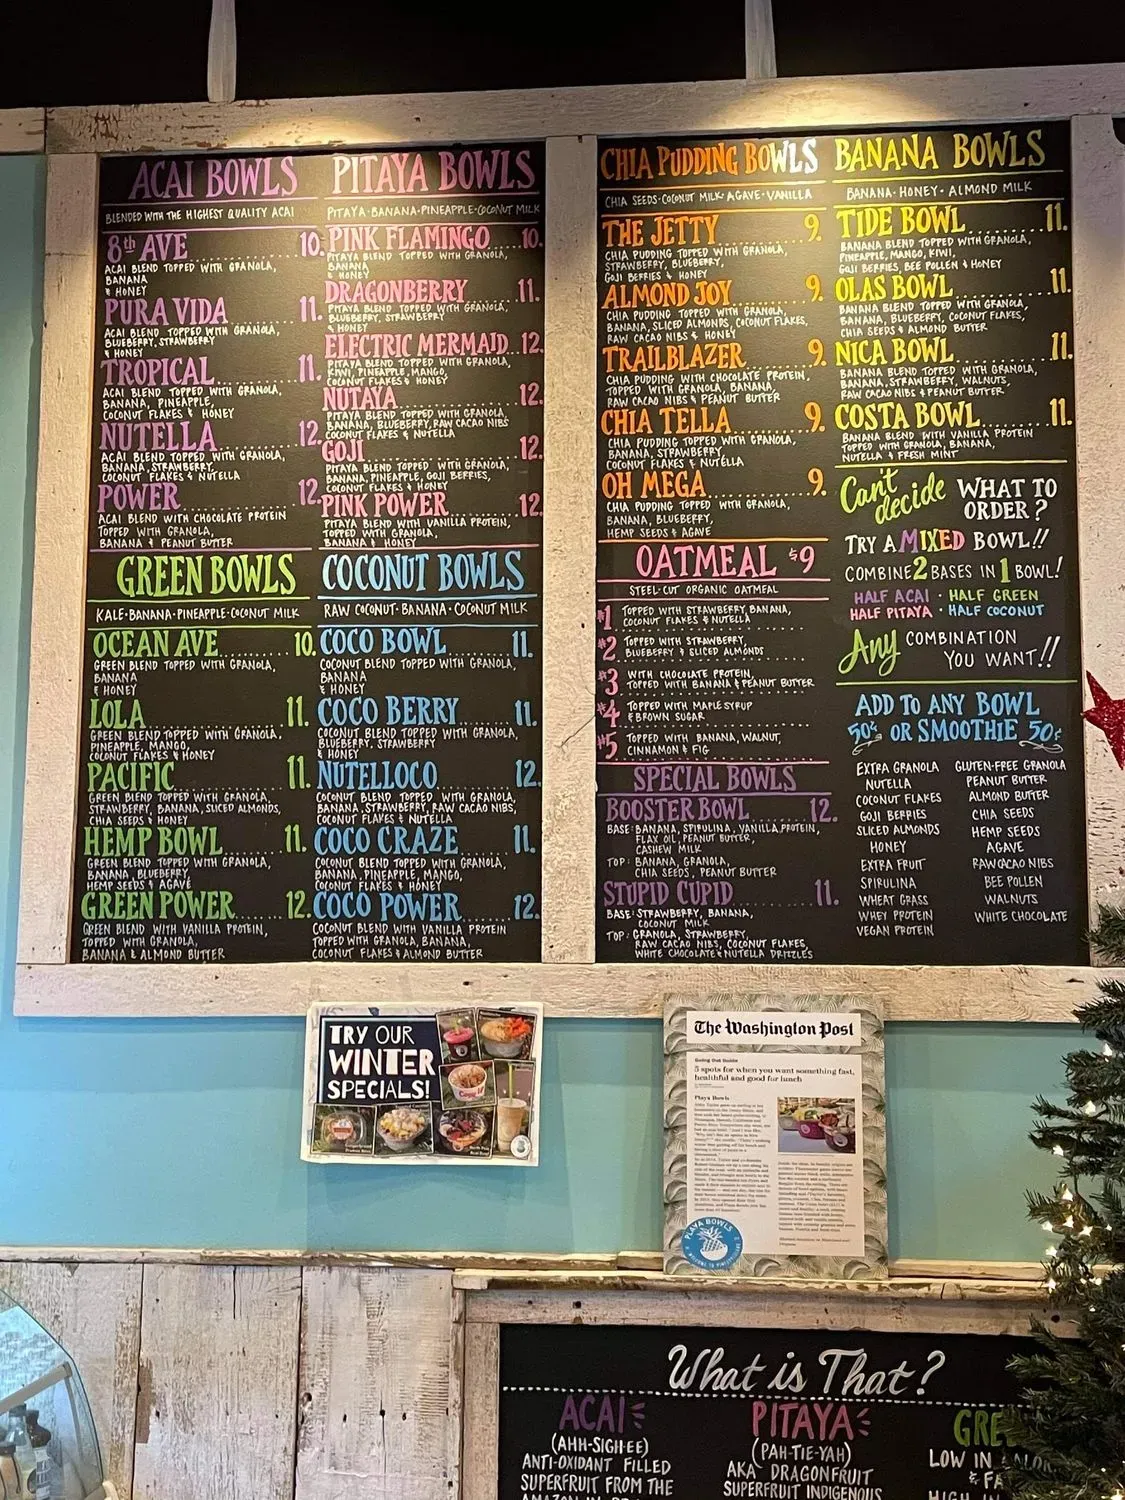 ACAI BOWLS
BLENDED WITH THE HIGHEST QUALITY ACAI
8th AVE 10.
ACAI BLEND TOPPED WITH GRANOLA,
BANANA
& HONEY
PURA VIDA 11.
ACAI BLEND TOPPED WITH GRANOLA,
BLUEBERRY, STRAWBERRY
& HONEY
TROPICAL 11.
ACAI BLEND TOPPED WITH GRANOLA,
BANANA, PINEAPPLE,
COCONUT FLAKES & HONEY
NUTELLA 12.
ACAI BLEND TOPPED WITH GRANOLA,
BANANA, STRAWBERRY,
COCONUT FLAKES & NUTELLA
POWER 12.
ACAI BLEND WITH CHOCOLATE PROTEIN
TOPPED WITH GRANOLA,
BANANA & PEANUT BUTTER
PITAYA BOWLS
PITAYA·BANANA·PINEAPPLE·COCONUT MILK
PINK FLAMINGO 10.
PITAYA BLEND TOPPED WITH GRANOLA,
BANANA
& HONEY
DRAGONBERRY 11.
PITAYA BLEND TOPPED WITH GRANOLA,
BLUEBERRY, STRAWBERRY
& HONEY
ELECTRIC MERMAID 12.
PITAYA BLEND TOPPED WITH GRANOLA,
KIWI, PINEAPPLE, MANGO,
COCONUT FLAKES & HONEY
NUTAYA 12.
PITAYA BLEND TOPPED WITH GRANOLA,
BANANA, BLUEBERRY, RAW CACAO NIBS
COCONUT FLAKES & NUTELLA
GOJI 12.
PITAYA BLEND TOPPED WITH GRANOLA,
BANANA, PINEAPPLE, GOJI BERRIES,
COCONUT FLAKES & HONEY
PINK POWER 12.
PITAYA BLEND WITH VANILLA PROTEIN,
TOPPED WITH GRANOLA,
BANANA & HONEY
GREEN BOWLS
KALE·BANANA·PINEAPPLE·COCONUT MILK
OCEAN AVE 10.
GREEN BLEND TOPPED WITH GRANOLA,
BANANA
& HONEY
LOLA 11.
GREEN BLEND TOPPED WITH GRANOLA,
PINEAPPLE, MANGO,
COCONUT FLAKES & HONEY
PACIFIC 11.
GREEN BLEND TOPPED WITH GRANOLA,
STRAWBERRY, BANANA, SLICED ALMONDS,
CHIA SEEDS & HONEY
HEMP BOWL 11.
GREEN BLEND TOPPED WITH GRANOLA,
BANANA, BLUEBERRY,
HEMP SEEDS & AGAVE
GREEN POWER 12.
GREEN BLEND WITH VANILLA PROTEIN,
TOPPED WITH GRANOLA,
BANANA & ALMOND BUTTER
COCONUT BOWLS
RAW COCONUT·BANANA·COCONUT MILK
COCO BOWL 11.
COCONUT BLEND TOPPED WITH GRANOLA,
BANANA
& HONEY
COCO BERRY 11.
COCONUT BLEND TOPPED WITH GRANOLA,
BLUEBERRY, STRAWBERRY
& HONEY
NUTELLOCO 12.
COCONUT BLEND TOPPED WITH GRANOLA,
BANANA, STRAWBERRY, RAW CACAO NIBS,
COCONUT FLAKES & NUTELLA
COCO CRAZE 11.
COCONUT BLEND TOPPED WITH GRANOLA,
BANANA, PINEAPPLE, MANGO,
COCONUT FLAKES & HONEY
COCO POWER 12.
COCONUT BLEND WITH VANILLA PROTEIN
TOPPED WITH GRANOLA, BANANA,
COCONUT FLAKES & ALMOND BUTTER
CHIA PUDDING BOWLS
CHIA SEEDS·COCONUT MILK·AGAVE·VANILLA
THE JETTY 9.
CHIA PUDDING TOPPED WITH GRANOLA,
STRAWBERRY, BLUEBERRY,
GOJI BERRIES & HONEY
ALMOND JOY 9.
CHIA PUDDING TOPPED WITH GRANOLA,
BANANA, SLICED ALMONDS, COCONUT FLAKES,
RAW CACAO NIBS & HONEY
TRAILBLAZER 9.
CHIA PUDDING WITH CHOCOLATE PROTEIN,
TOPPED WITH GRANOLA, BANANA,
RAW CACAO NIBS & PEANUT BUTTER
CHIA TELLA 9.
CHIA PUDDING TOPPED WITH GRANOLA,
BANANA, STRAWBERRY,
COCONUT FLAKES & NUTELLA
OH MEGA 9.
CHIA PUDDING TOPPED WITH GRANOLA,
BANANA, BLUEBERRY,
HEMP SEEDS & AGAVE
OATMEAL $9
STEEL-CUT ORGANIC OATMEAL
#1 TOPPED WITH STRAWBERRY, BANANA,
COCONUT FLAKES & NUTELLA
#2 TOPPED WITH STRAWBERRY,
BLUEBERRY & SLICED ALMONDS
#3 WITH CHOCOLATE PROTEIN,
TOPPED WITH BANANA & PEANUT BUTTER
#4 TOPPED WITH MAPLE SYRUP
& BROWN SUGAR
#5 TOPPED WITH BANANA, WALNUT,
CINNAMON & FIG
SPECIAL BOWLS
BOOSTER BOWL 12.
BASE: BANANA, SPIRULINA, VANILLA PROTEIN,
FLAX OIL, PEANUT BUTTER,
CASHEW MILK
TOP: BANANA, GRANOLA,
CHIA SEEDS, PEANUT BUTTER
STUPID CUPID 11.
BASE: STRAWBERRY, BANANA,
COCONUT MILK
TOP: GRANOLA, STRAWBERRY,
RAW CACAO NIBS, COCONUT FLAKES,
WHITE CHOCOLATE & NUTELLA DRIZZLES
BANANA BOWLS
BANANA·HONEY·ALMOND MILK
TIDE BOWL 11.
BANANA BLEND TOPPED WITH GRANOLA,
PINEAPPLE, MANGO, KIWI,
GOJI BERRIES, BEE POLLEN & HONEY
OLAS BOWL 11.
BANANA BLEND TOPPED WITH GRANOLA,
BANANA, BLUEBERRY, COCONUT FLAKES,
CHIA SEEDS & ALMOND BUTTER
NICA BOWL 11.
BANANA BLEND TOPPED WITH GRANOLA,
BANANA, STRAWBERRY, WALNUTS,
RAW CACAO NIBS & PEANUT BUTTER
COSTA BOWL 11.
BANANA BLEND WITH VANILLA PROTEIN
TOPPED WITH GRANOLA, BANANA,
NUTELLA & FRESH MINT
Can't decide WHAT TO
ORDER?
TRY A MIXED BOWL!!
COMBINE 2 BASES IN 1 BOWL!
HALF ACAI · HALF GREEN
HALF PITAYA · HALF COCONUT
Any COMBINATION
YOU WANT!!
ADD TO ANY BOWL
50¢ OR SMOOTHIE 50¢
EXTRA GRANOLA
NUTELLA
COCONUT FLAKES
GOJI BERRIES
SLICED ALMONDS
HONEY
EXTRA FRUIT
SPIRULINA
WHEAT GRASS
WHEY PROTEIN
VEGAN PROTEIN
GLUTEN-FREE GRANOLA
PEANUT BUTTER
ALMOND BUTTER
CHIA SEEDS
HEMP SEEDS
AGAVE
RAW CACAO NIBS
BEE POLLEN
WALNUTS
WHITE CHOCOLATE
TRY OUR
WINTER
SPECIALS!
The Washington Post
Going Out Guide
5 spots for when you want something fast,
healthful and good for lunch
Playa Bowls
PLAYA BOWLS
What is That?
ACAI
(AHH-SIGH-EE)
ANTI-OXIDANT FILLED
SUPERFRUIT FROM THE
PITAYA
(PAH-TIE-YAH)
AKA DRAGONFRUIT
SUPERFRUIT INDIGENOUS
GRE
LOW IN